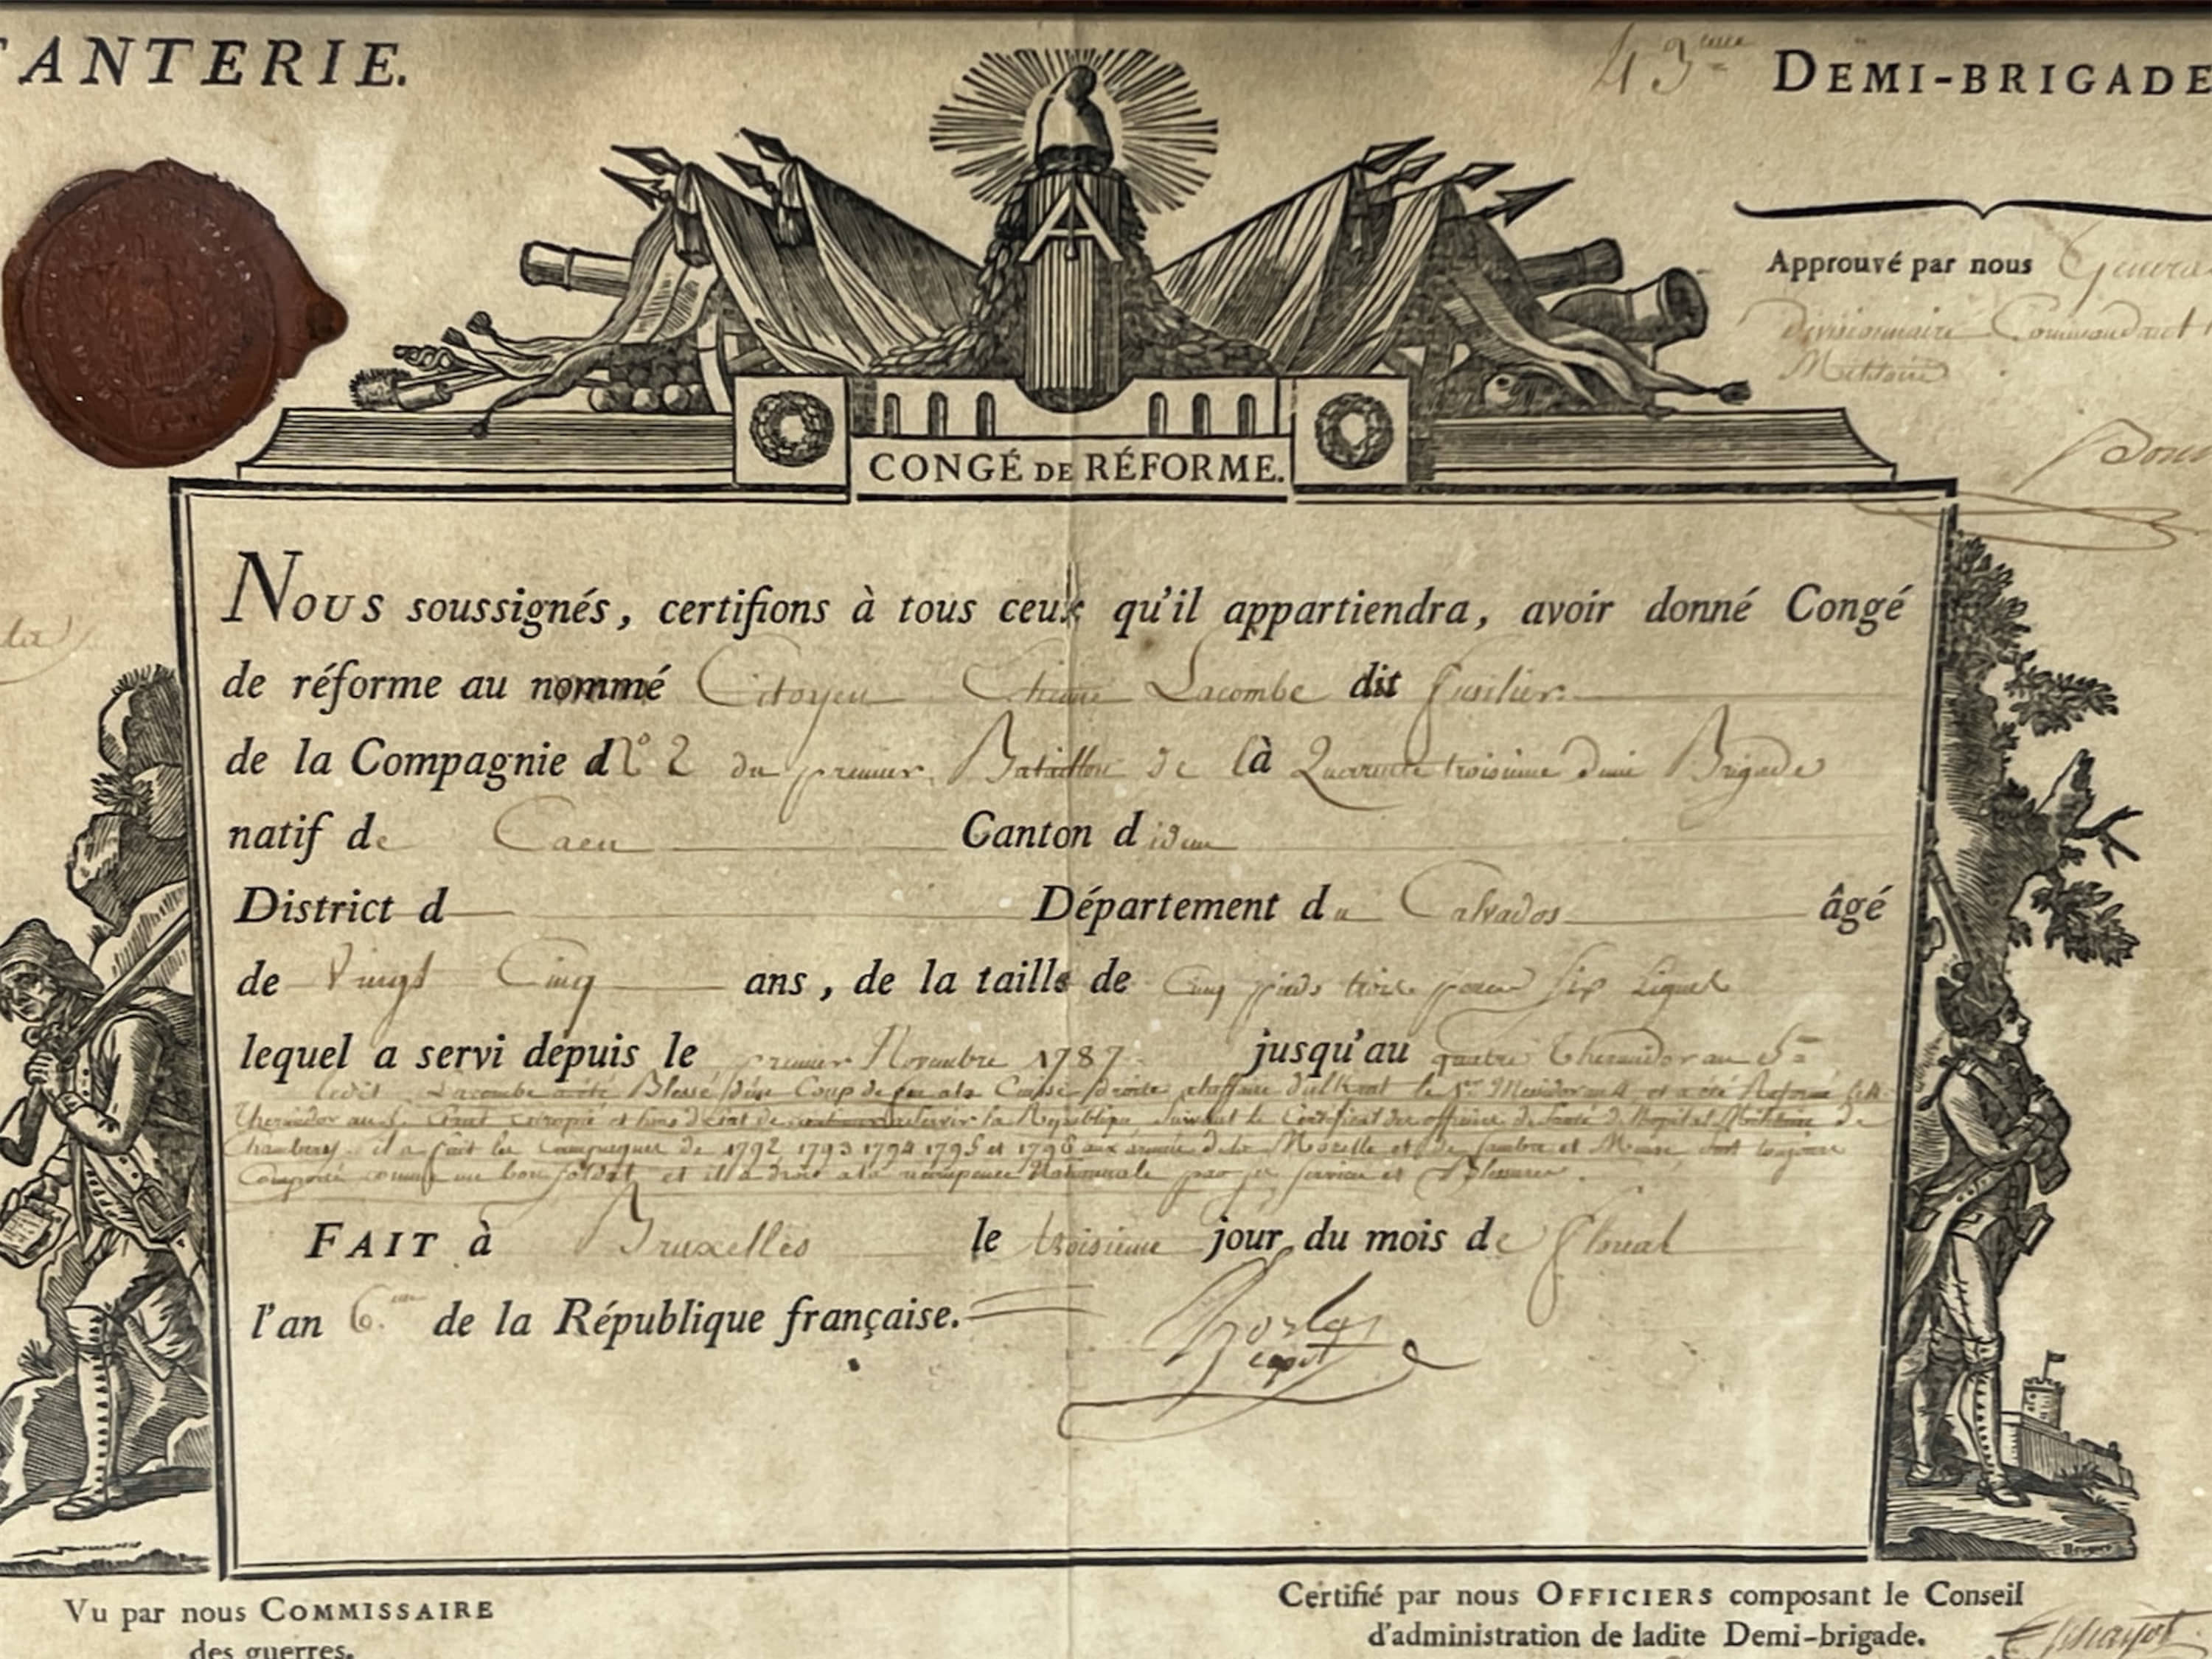 ANTERIE.
43eme DEMI-BRIGADE
Approuvé par nous Général
divisionnaire Commandant
Militaire
CONGÉ DE RÉFORME.
Nous soussignés, certifions à tous ceux qu'il appartiendra, avoir donné Congé
de réforme au nommé Citoyen Lacombe dit fusilier
de la Compagnie d N° 2 du premier Bataillon de la Quarante troisieme demi Brigade
natif de Caen Canton d idem
District d Département du Calvados âgé
de Vingt Cinq ans, de la taille de Cinq pieds trois pouces six Lignes
lequel a servi depuis le premier Novembre 1787 jusqu'au quatre Thermidor an 5
ledit Lacombe a été Blessé d'un Coup de feu a la Cuisse droite le 1er Messidor an 4 et a été Réformé le 4
Thermidor an 5 Etant estropié et hors d'état de servir la République suivant le Certificat des officiers de Santé de l'hopital Militaire de
Chambery il a fait les Campagnes de 1792 1793 1794 1795 et 1796 aux armées de la Moselle et de Sambre et Meuse toujours
Comporté comme un bon soldat et il a droit a la récompense Nationale par ses services et Blessures.
FAIT à Bruxelles le troisieme jour du mois de floreal
l'an 6.me de la République française.
capt
Vu par nous COMMISSAIRE
des guerres.
Certifié par nous OFFICIERS composant le Conseil
d'administration de ladite Demi-brigade.